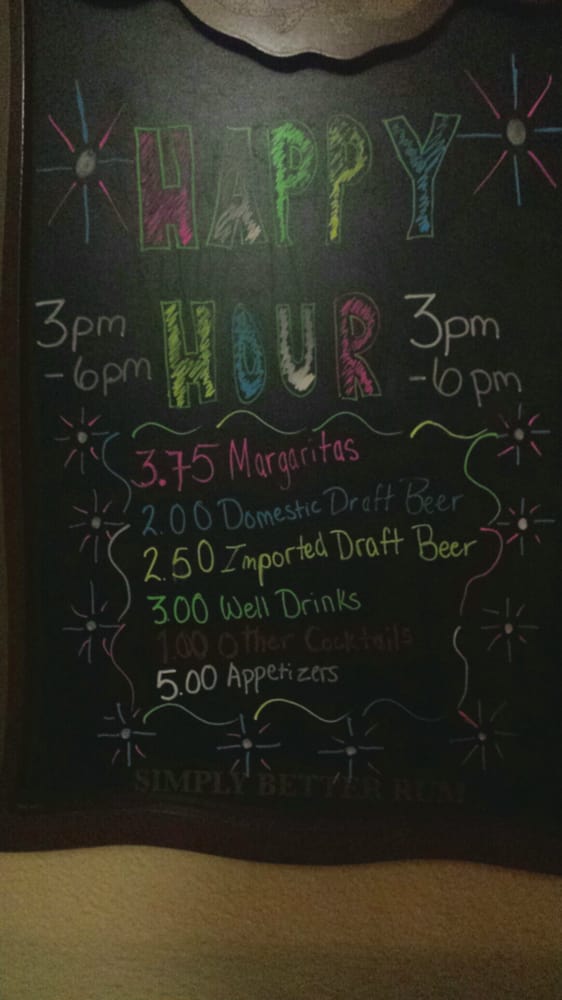 HAPPY
HOUR
3pm
-6pm
3pm
-6pm
3.75 Margaritas
2.00 Domestic Draft Beer
2.50 Imported Draft Beer
3.00 Well Drinks
1.00 Other Cocktails
5.00 Appetizers
SIMPLY BETTER RUM